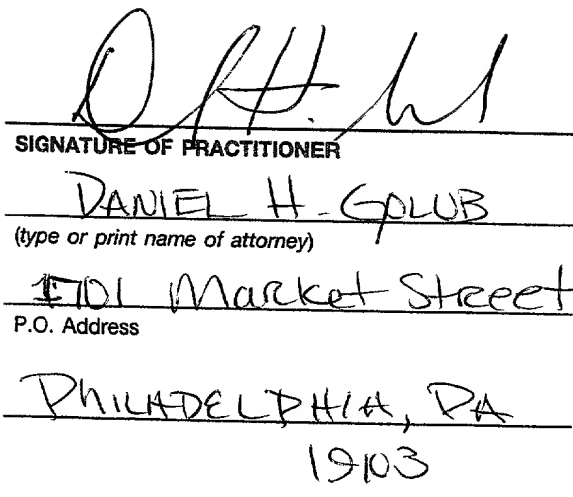 SIGNATURE OF PRACTITIONER
DANIEL H. GOLUB
(type or print name of attorney)
1701 Market Street
P.O. Address
PHILADELPHIA, PA
19103